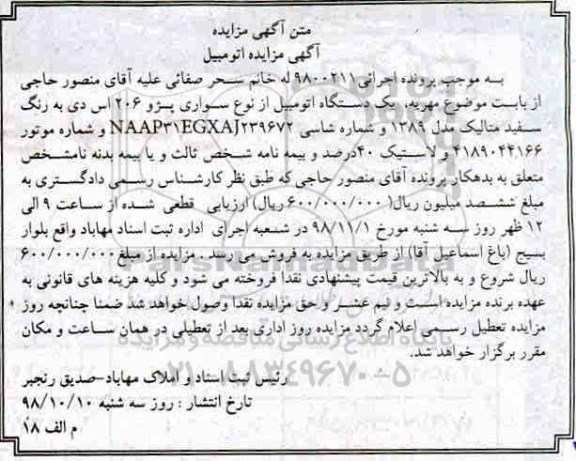 متن آگهی مزایده
آگهی مزایده اتومبیل
به موجب پرونده اجرائی ۹۸۰۰۲۱۱ له خانم سحر صفائی علیه آقای منصور حاجی
از بابت موضوع مهریه، یک دستگاه اتومبیل از نوع سواری پژو ۲۰۶ اس دی به رنگ
سفید متالیک مدل ۱۳۸۹ و شماره شاسی NAAP۳۱EGXAJ۲۳۹۶۷۲ و شماره موتور
۴۱۸۹۰۴۴۱۶۶ و لاستیک ۴۰درصد و بیمه نامه شخص ثالث و یا بیمه بدنه نامشخص
متعلق به بدهکار پرونده آقای منصور حاجی که طبق نظر کارشناس رسمی دادگستری به
مبلغ ششصد میلیون ریال( ۶۰۰/۰۰۰/۰۰۰ ریال) ارزیابی قطعی شده از ساعت ۹ الی
۱۲ ظهر روز سه شنبه مورخ ۹۸/۱۱/۱ در شعبه اجرای اداره ثبت اسناد مهاباد واقع بلوار
بسیج (باغ اسماعیل آقا) از طریق مزایده به فروش می رسد . مزایده از مبلغ ۶۰۰/۰۰۰/۰۰۰
ریال شروع و به بالاترین قیمت پیشنهادی نقدا فروخته می شود و کلیه هزینه های قانونی به
عهده برنده مزایده است و نیم عشر و حق مزایده نقدا وصول خواهد شد ضمنا چنانچه روز
مزایده تعطیل رسمی اعلام گردد مزایده روز اداری بعد از تعطیلی در همان ساعت و مکان
مقرر برگزار خواهد شد.
رئیس ثبت اسناد و املاک مهاباد-صدیق رنجبر
تاریخ انتشار : روز سه شنبه ۹۸/۱۰/۱۰
م الف ۱۸
پایگاه اطلاع رسانی مناقصه و مزایده
۰۲۱-۸۸۳۴۹۶۷۰-۵